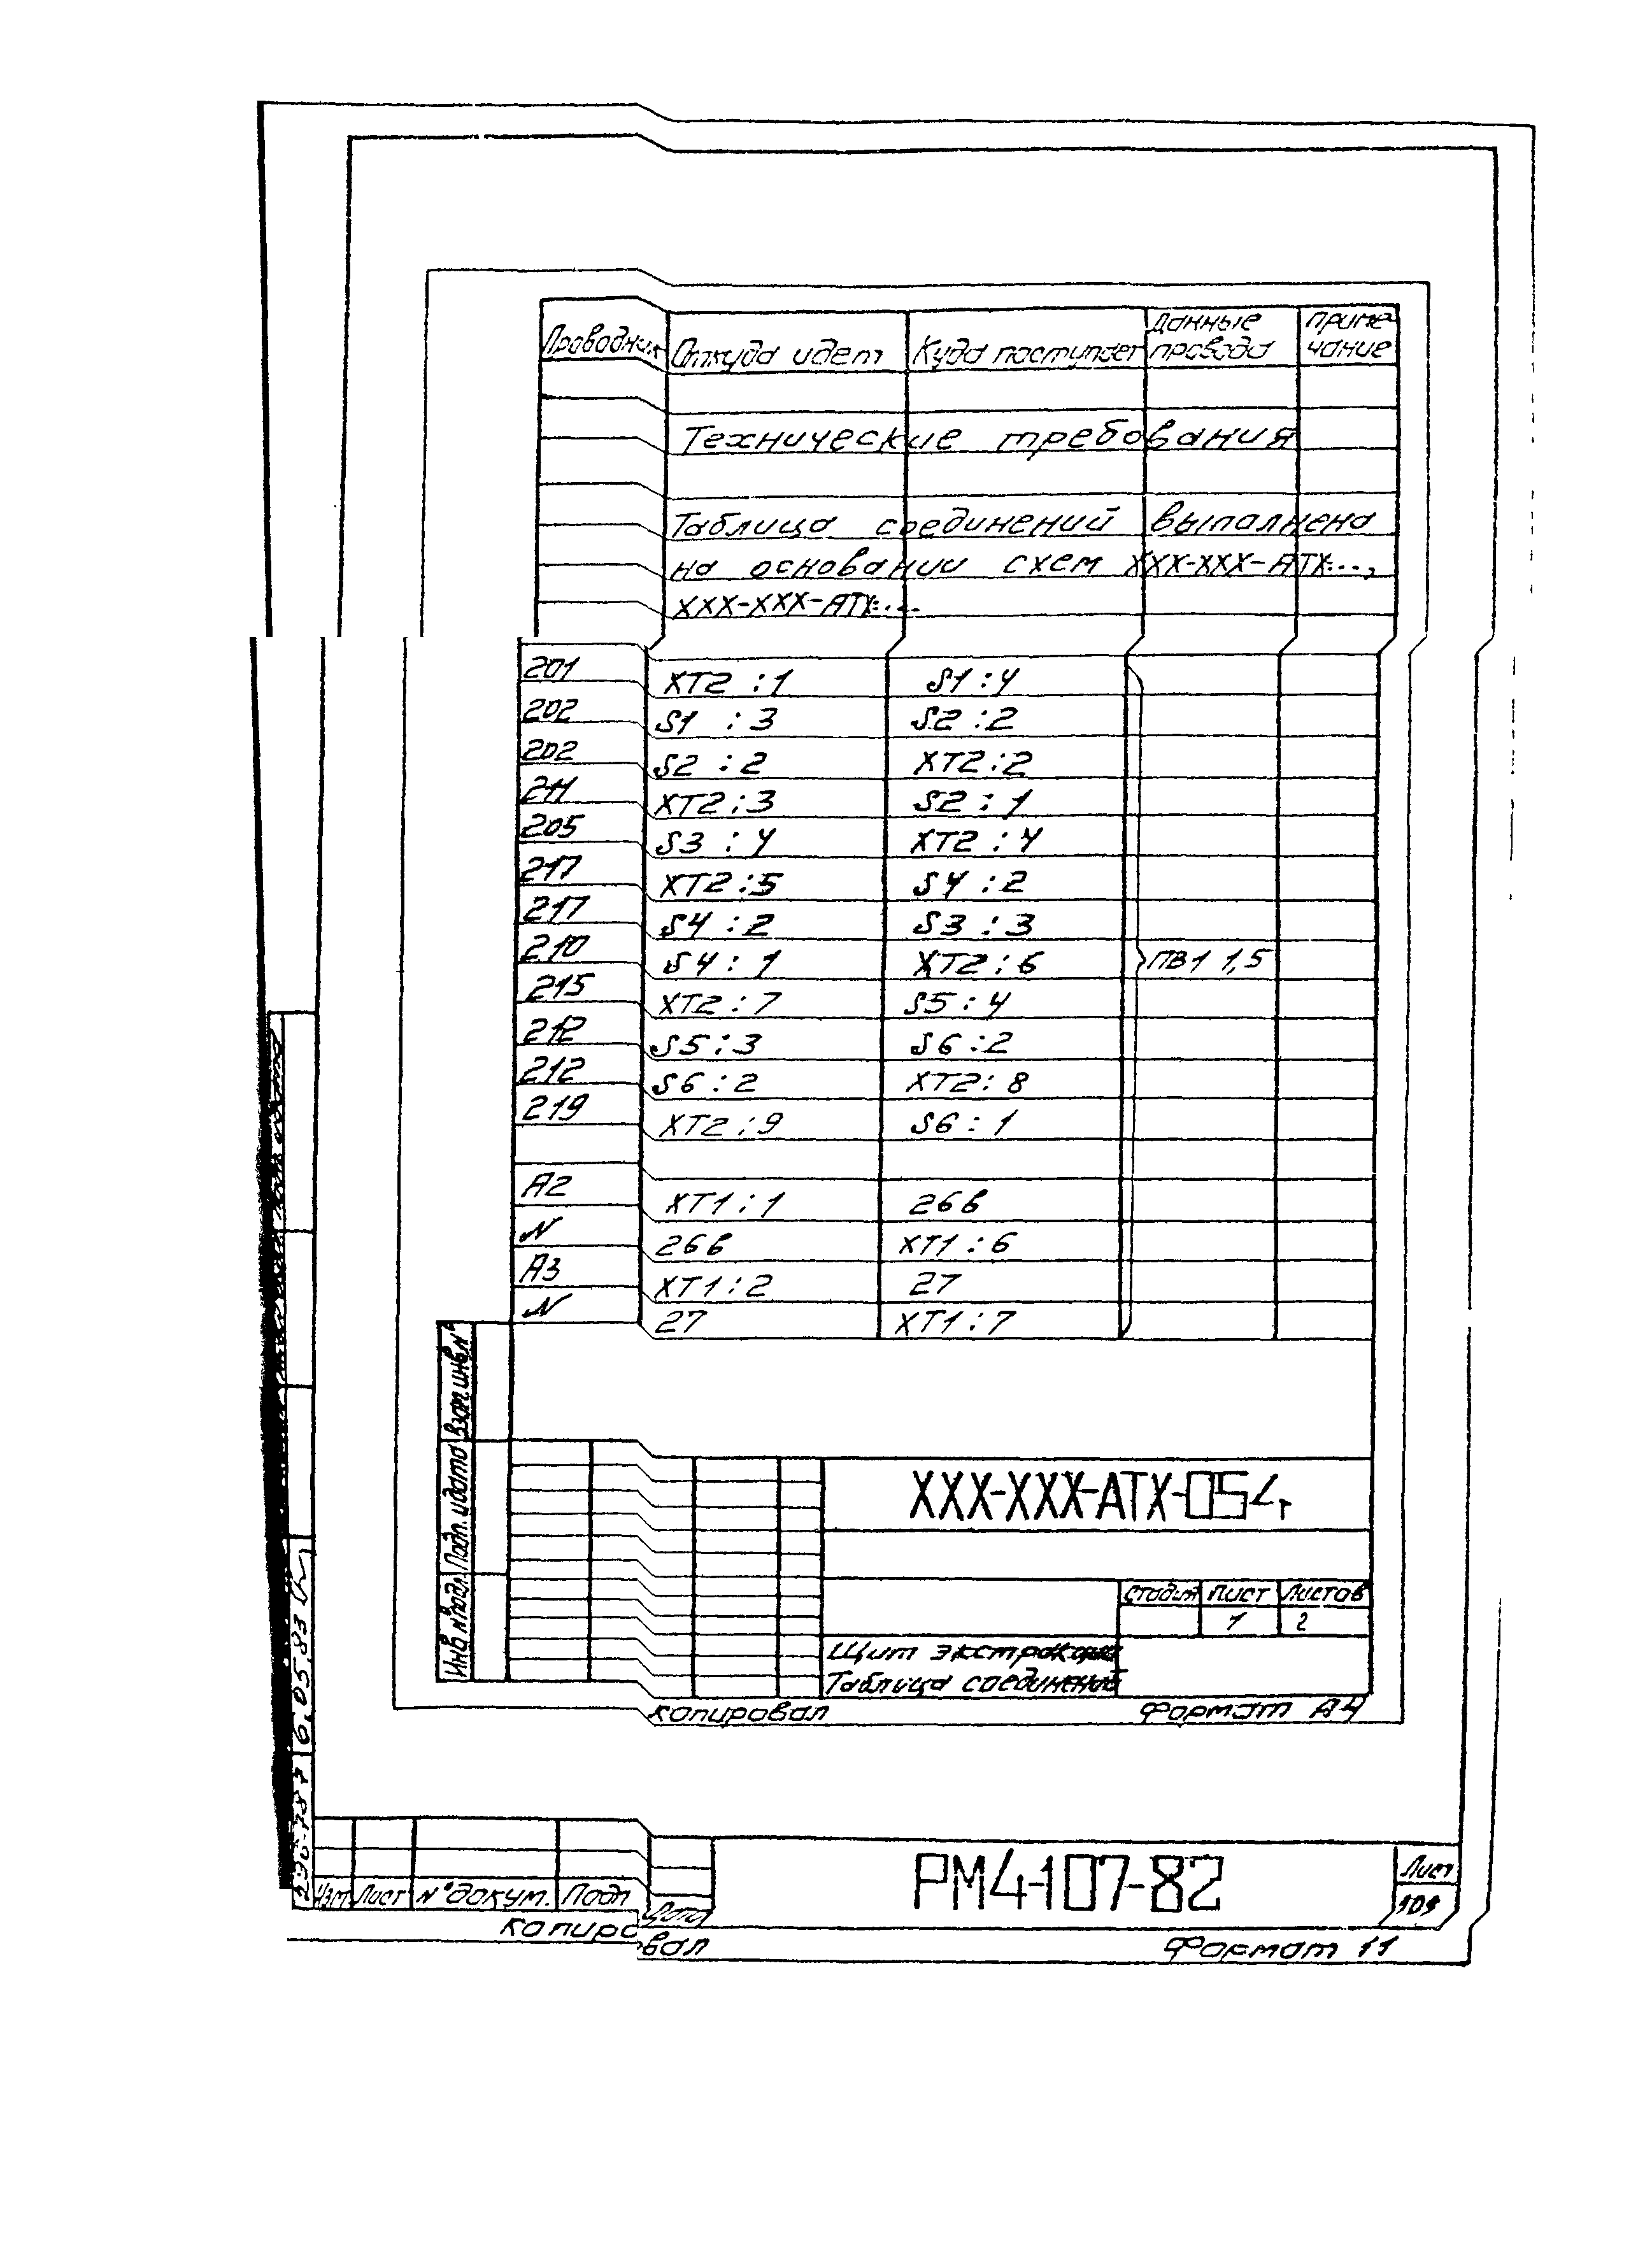 Проводник Откуда идет Куда поступает Данные провода Приме-чание
Технические требования
Таблица соединений выполнена
на основании схем XXX-XXX-АТХ...,
XXX-XXX-АТХ...
201 XT2 : 1 S1 : 4
202 S1 : 3 S2 : 2
202 S2 : 2 XT2 : 2
211 XT2 : 3 S2 : 1
205 S3 : 4 XT2 : 4
217 XT2 : 5 S4 : 2
217 S4 : 2 S3 : 3
210 S4 : 1 XT2 : 6 ПВ1 1,5
215 XT2 : 7 S5 : 4
212 S5 : 3 S6 : 2
212 S6 : 2 XT2 : 8
219 XT2 : 9 S6 : 1
А2 XT1 : 1 26в
N 26в XT1 : 6
А3 XT1 : 2 27
N 27 XT1 : 7
Взам. инв. №
Подп. и дата
Инв № подл.
XXX-XXX-АТХ-054
Стадия Лист Листов
1 2
Щит экстракции
Таблица соединений
Копировал Формат А4
Изм Лист № докум. Подп Дата
РМ4-107-82
Лист
109
Копировал Формат 11